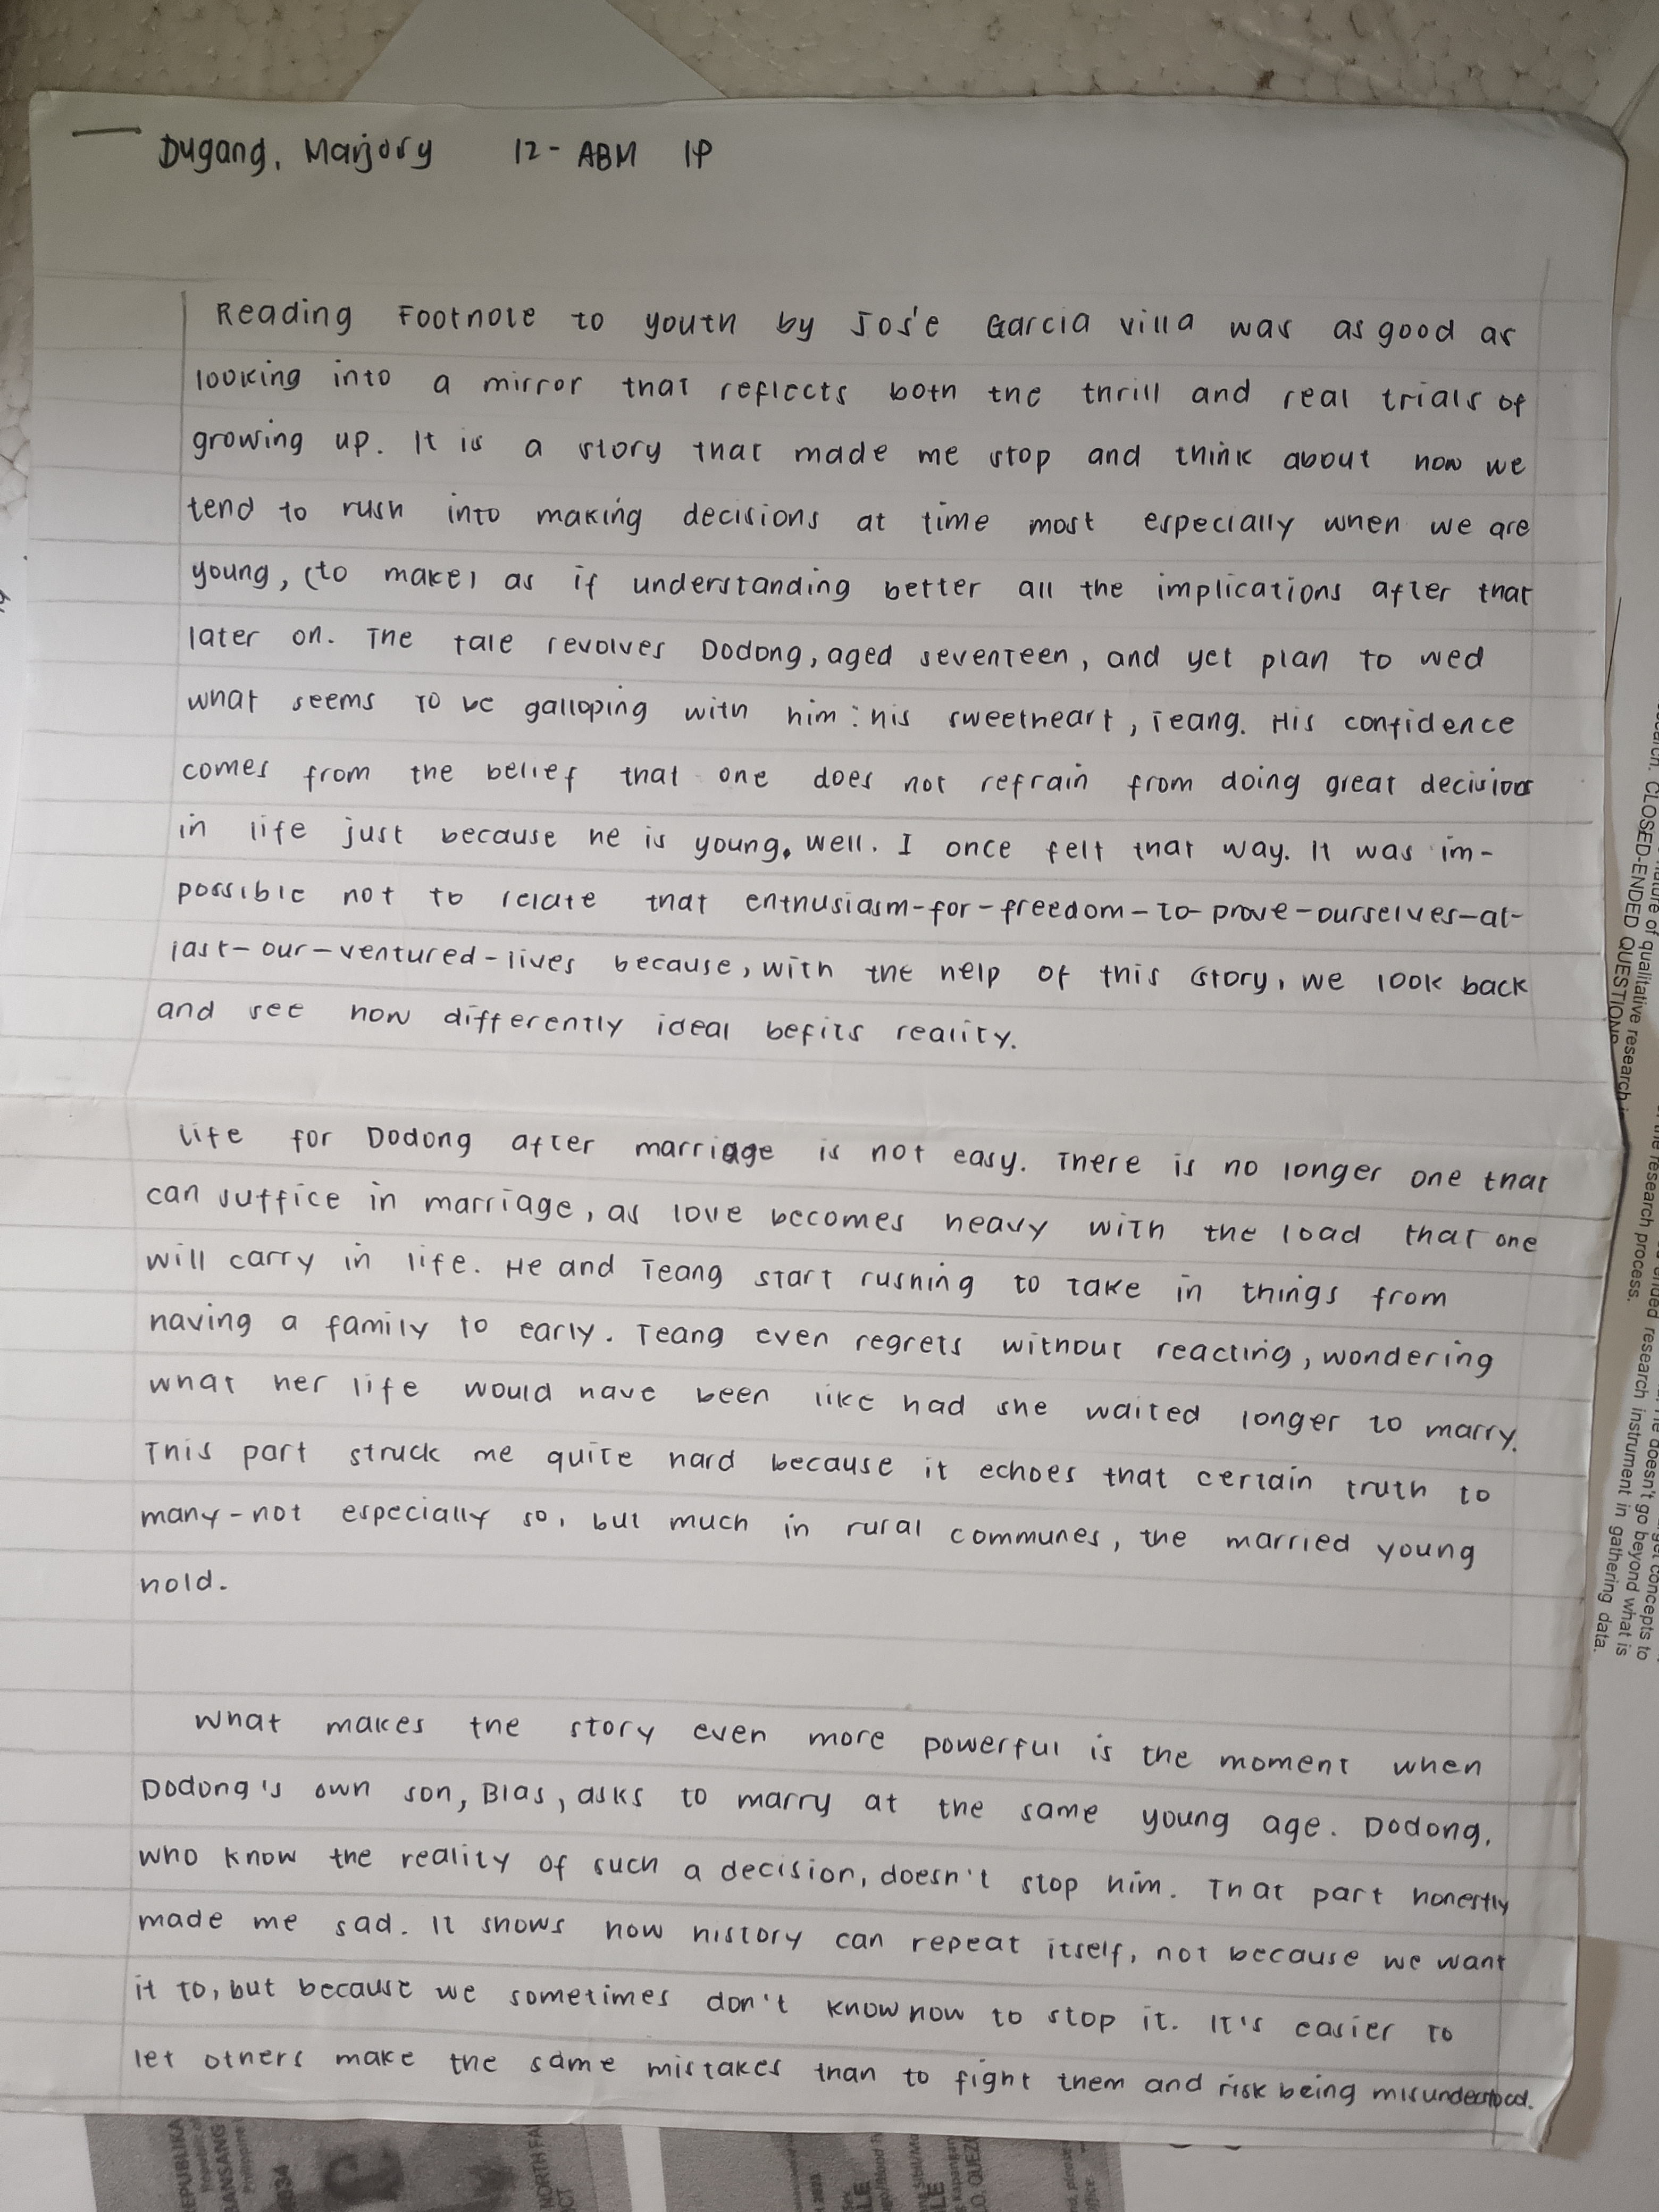 Dugang, Marjory 12- ABM 1P
Reading Footnote to youth by Jos'e Garcia villa was as good as
looking into a mirror that reflects both the thrill and real trials of
growing up. It is a story that made me stop and think about how we
tend to rush into making decisions at time most especially when we are
young, (to make) as if understanding better all the implications after that
later on. The tale revolves Dodong, aged seventeen, and yet plan to wed
what seems to be galloping with him : his sweetheart, Teang. His confidence
comes from the belief that one does not refrain from doing great decisions
in life just because he is young. well. I once felt that way. It was im-
possible not to relate that enthusiasm-for-freedom-to-prove-ourselves-at-
last-our-ventured-lives because, with the help of this story, we look back
and see how differently ideal befits reality.
Life for Dodong after marriage is not easy. There is no longer one that
can suffice in marriage, as love becomes heavy with the load that one
will carry in life. He and Teang start rushing to take in things from
having a family to early. Teang even regrets without reacting, wondering
what her life would have been like had she waited longer to marry.
This part struck me quite hard because it echoes that certain truth to
many-not especially so, but much in rural communes, the married young
hold.
What makes the story even more powerful is the moment when
Dodong's own son, Blas, asks to marry at the same young age. Dodong,
who know the reality of such a decision, doesn't stop him. That part honestly
made me sad. It shows how history can repeat itself, not because we want
it to, but because we sometimes don't know how to stop it. It's easier to
let others make the same mistakes than to fight them and risk being misunderstood.
CLOSED-ENDED QUESTIONS
nature of qualitative research
the research process.
research instrument in gathering data.
doesn't go beyond what is
concepts to
REPUBLIKA
BANSANG
NORTH FA